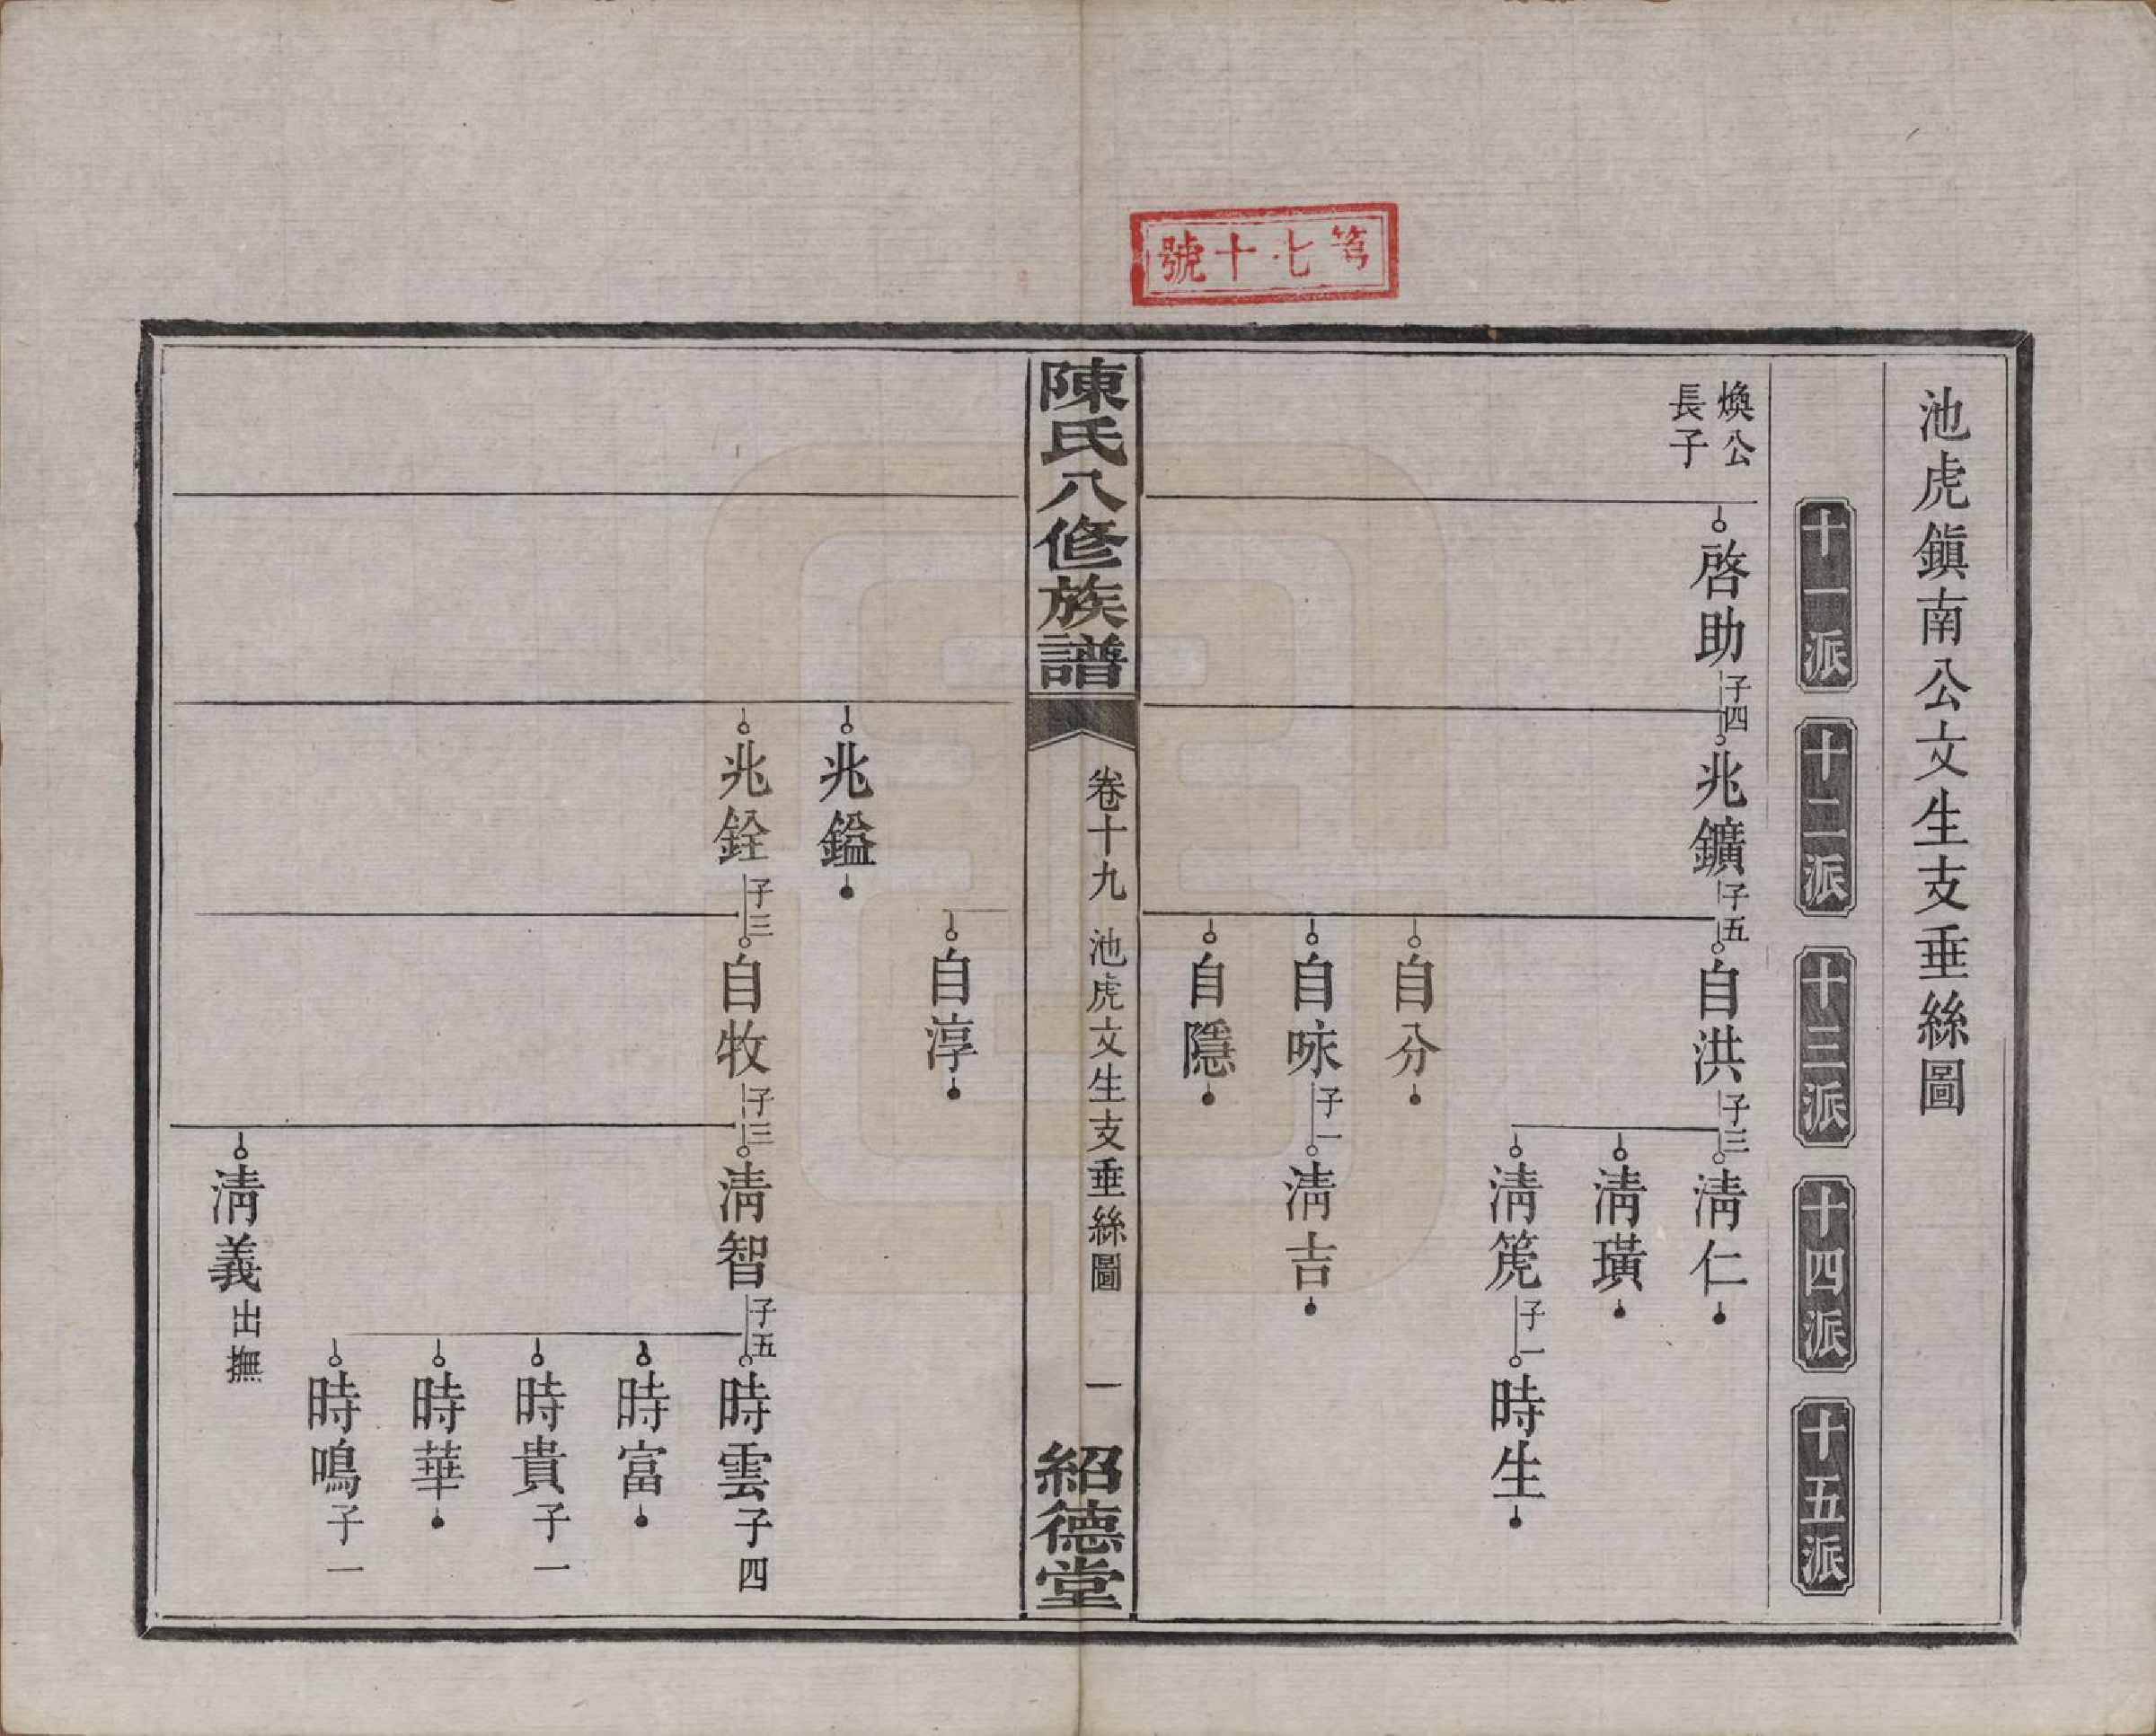 號十七笃
池虎鎭南公文生支垂絲圖
十一派
十二派
十三派
十四派
十五派
煥公
長子
啓助
子四
兆鑛
子五
自洪
子三
淸仁
淸璜
淸箎
子一
時生
自分
自咏
子一
淸吉
自隱
陳氏八修族譜
卷十九
池虎文生支垂絲圖
一
紹德堂
自淳
兆鎰
兆銓
子三
自牧
子三
淸智
子五
時雲
子四
時富
時貴
子一
時華
時鳴
子一
淸義
出撫